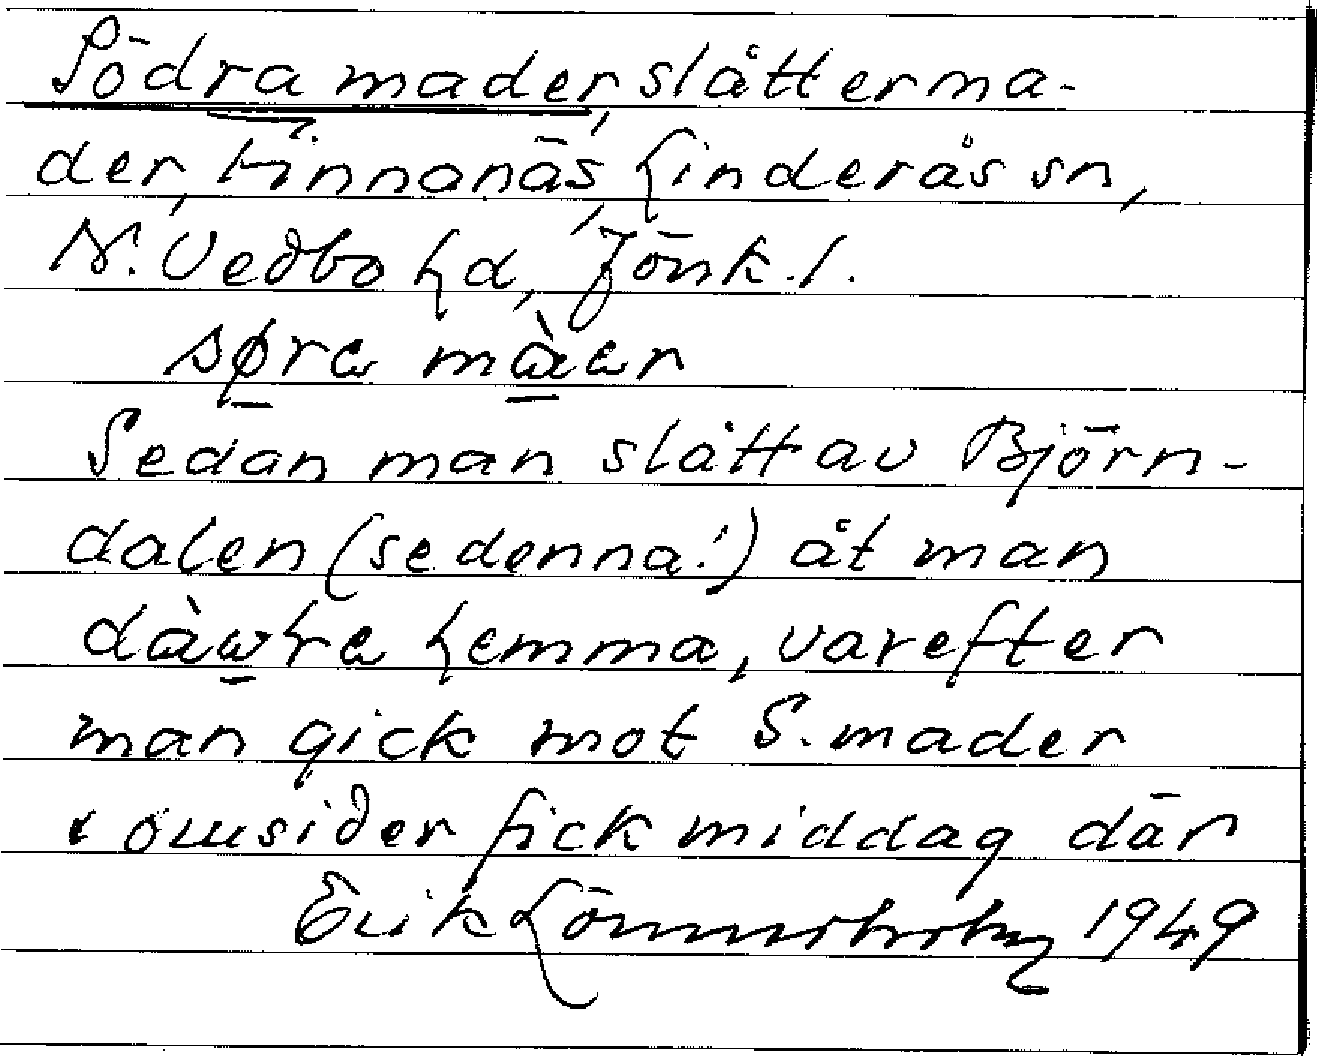 Södra mader, slåtterma-
der, Linnanäs, Linderås sn,
N. Vedbo hd, Jönk. l.
søra màar
Sedan man slått av Björn-
dalen (se denna!) åt man
hemma, varefter
man gick mot S. mader
o omsider fick middag där
Erik 1949